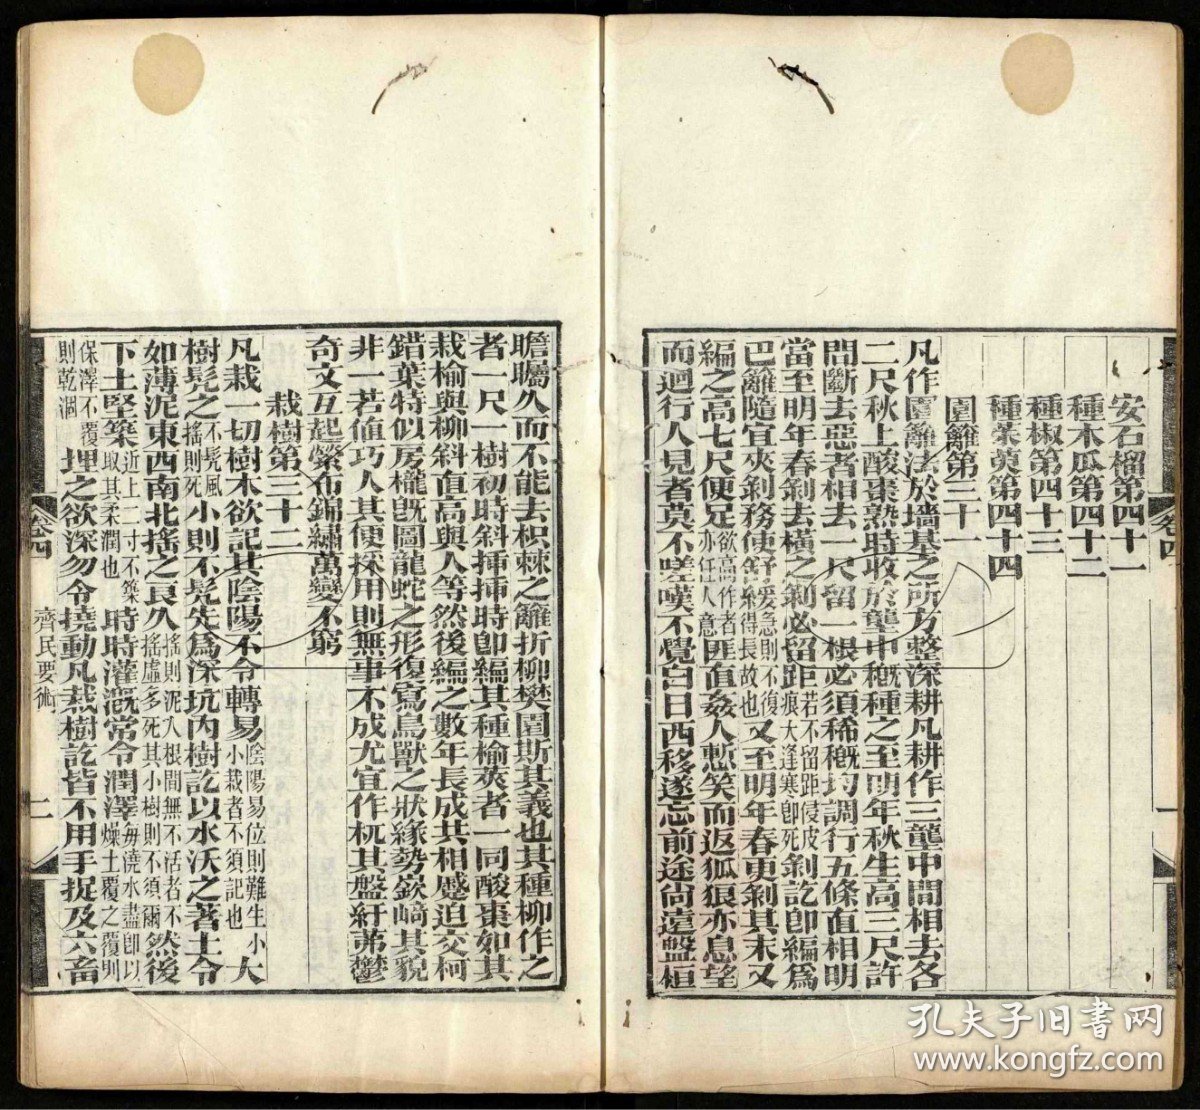 卷四
一
安石榴第四十一
種木瓜第四十二
種椒第四十三
種茱萸第四十四
園籬第三十一
凡作園籬法於墻基之所方整深耕凡耕作三壟中間相去各
二尺秋上酸棗熟時收於壟中穊種之至明年秋生高三尺許
間斷去惡者相去一尺留一根必須稀穊均調行五條直相明
當至明年春剝去橫之剝必留距若不留距侵皮痕大逢寒即死剝訖即編爲
巴籬隨宜夾剝務使舒緩急則不復得長故也又至明年春更剝其末又
編之高七尺便足欲高作者亦任人意匪直姦人慙笑而返狐狼亦息望
而迴行人見者莫不嗟嘆不覺白日西移遂忘前途尚遠盤桓
瞻矚久而不能去枳棘之籬折柳樊園斯其義也其種柳作之
者一尺一樹初時斜揷揷時即編其種榆莢者一同酸棗如其
栽榆與柳斜直高與人等然後編之數年長成共相蹙迫交柯
錯葉特似房櫳旣圖龍蛇之形復寫鳥獸之狀緣勢嶔崎其貌
非一若値巧人其便採用則無事不成尤宜作杌其盤紆茀鬱
奇文互起縈布錦繡萬變不窮
栽樹第三十二
凡栽一切樹木欲記其陰陽不令轉易陰陽易位則難生小小栽者不須記也大
樹髠之不髠風搖則死小則不髠先爲深坑內樹訖以水沃之著土令
如薄泥東西南北搖之良久搖則泥入根間無不活者不搖虛多死其小樹則不須爾然後
下土堅築近上三寸不築取其柔潤也時時灌漑常令潤澤每澆水盡即以燥土覆之覆則
保澤不覆則乾涸埋之欲深勿令撓動凡栽樹訖皆不用手捉及六畜
卷四
齊民要術
二
孔夫子旧書网
www.kongfz.com